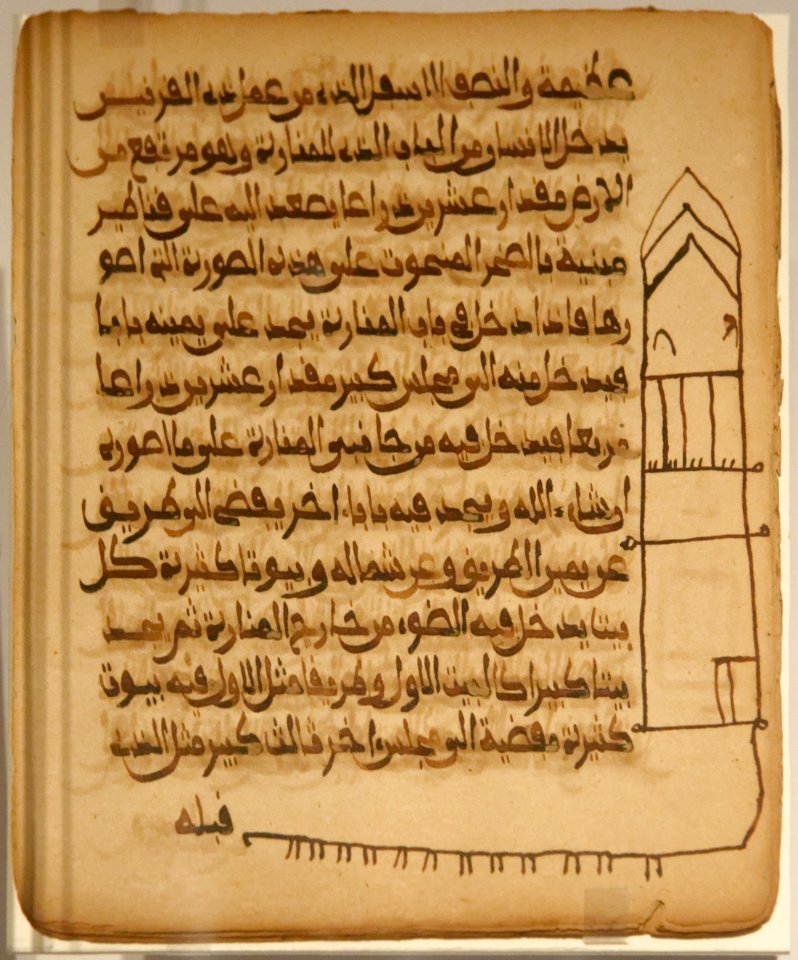 عظيمة والنصف الاسفل الذي من عمل ذي القرنين
يدخل الانسان من الباب الذي للمنارة وهو مرتفع من
الارض مقدار عشرين ذراعا يصعد اليه على قناطير
مبنية بالصخر المنحوت على هذه الصورة التي اصو
رها فاذا دخل في باب المنارة يجد على يمينه بابا
فيدخل منه الى مجلس كبير مقدار عشرين ذراعا
مربعا فيدخل فيه من جانبي المنارة على ما اصوره
ان شاء الله ويجد فيه بابا اخر يفضي الى طريق
عن يمين الطريق وعن شماله وبيوتا كثيرة كل
بيتا يدخل فيه الضوء من خارج المنارة ثم يجد
بيتا كبيرا كالبيت الاول وطريقا مثل الاول فيه بيوت
كثيرة مفضية الى مجلس اخر ثالث كبير مثل الذي
قبله